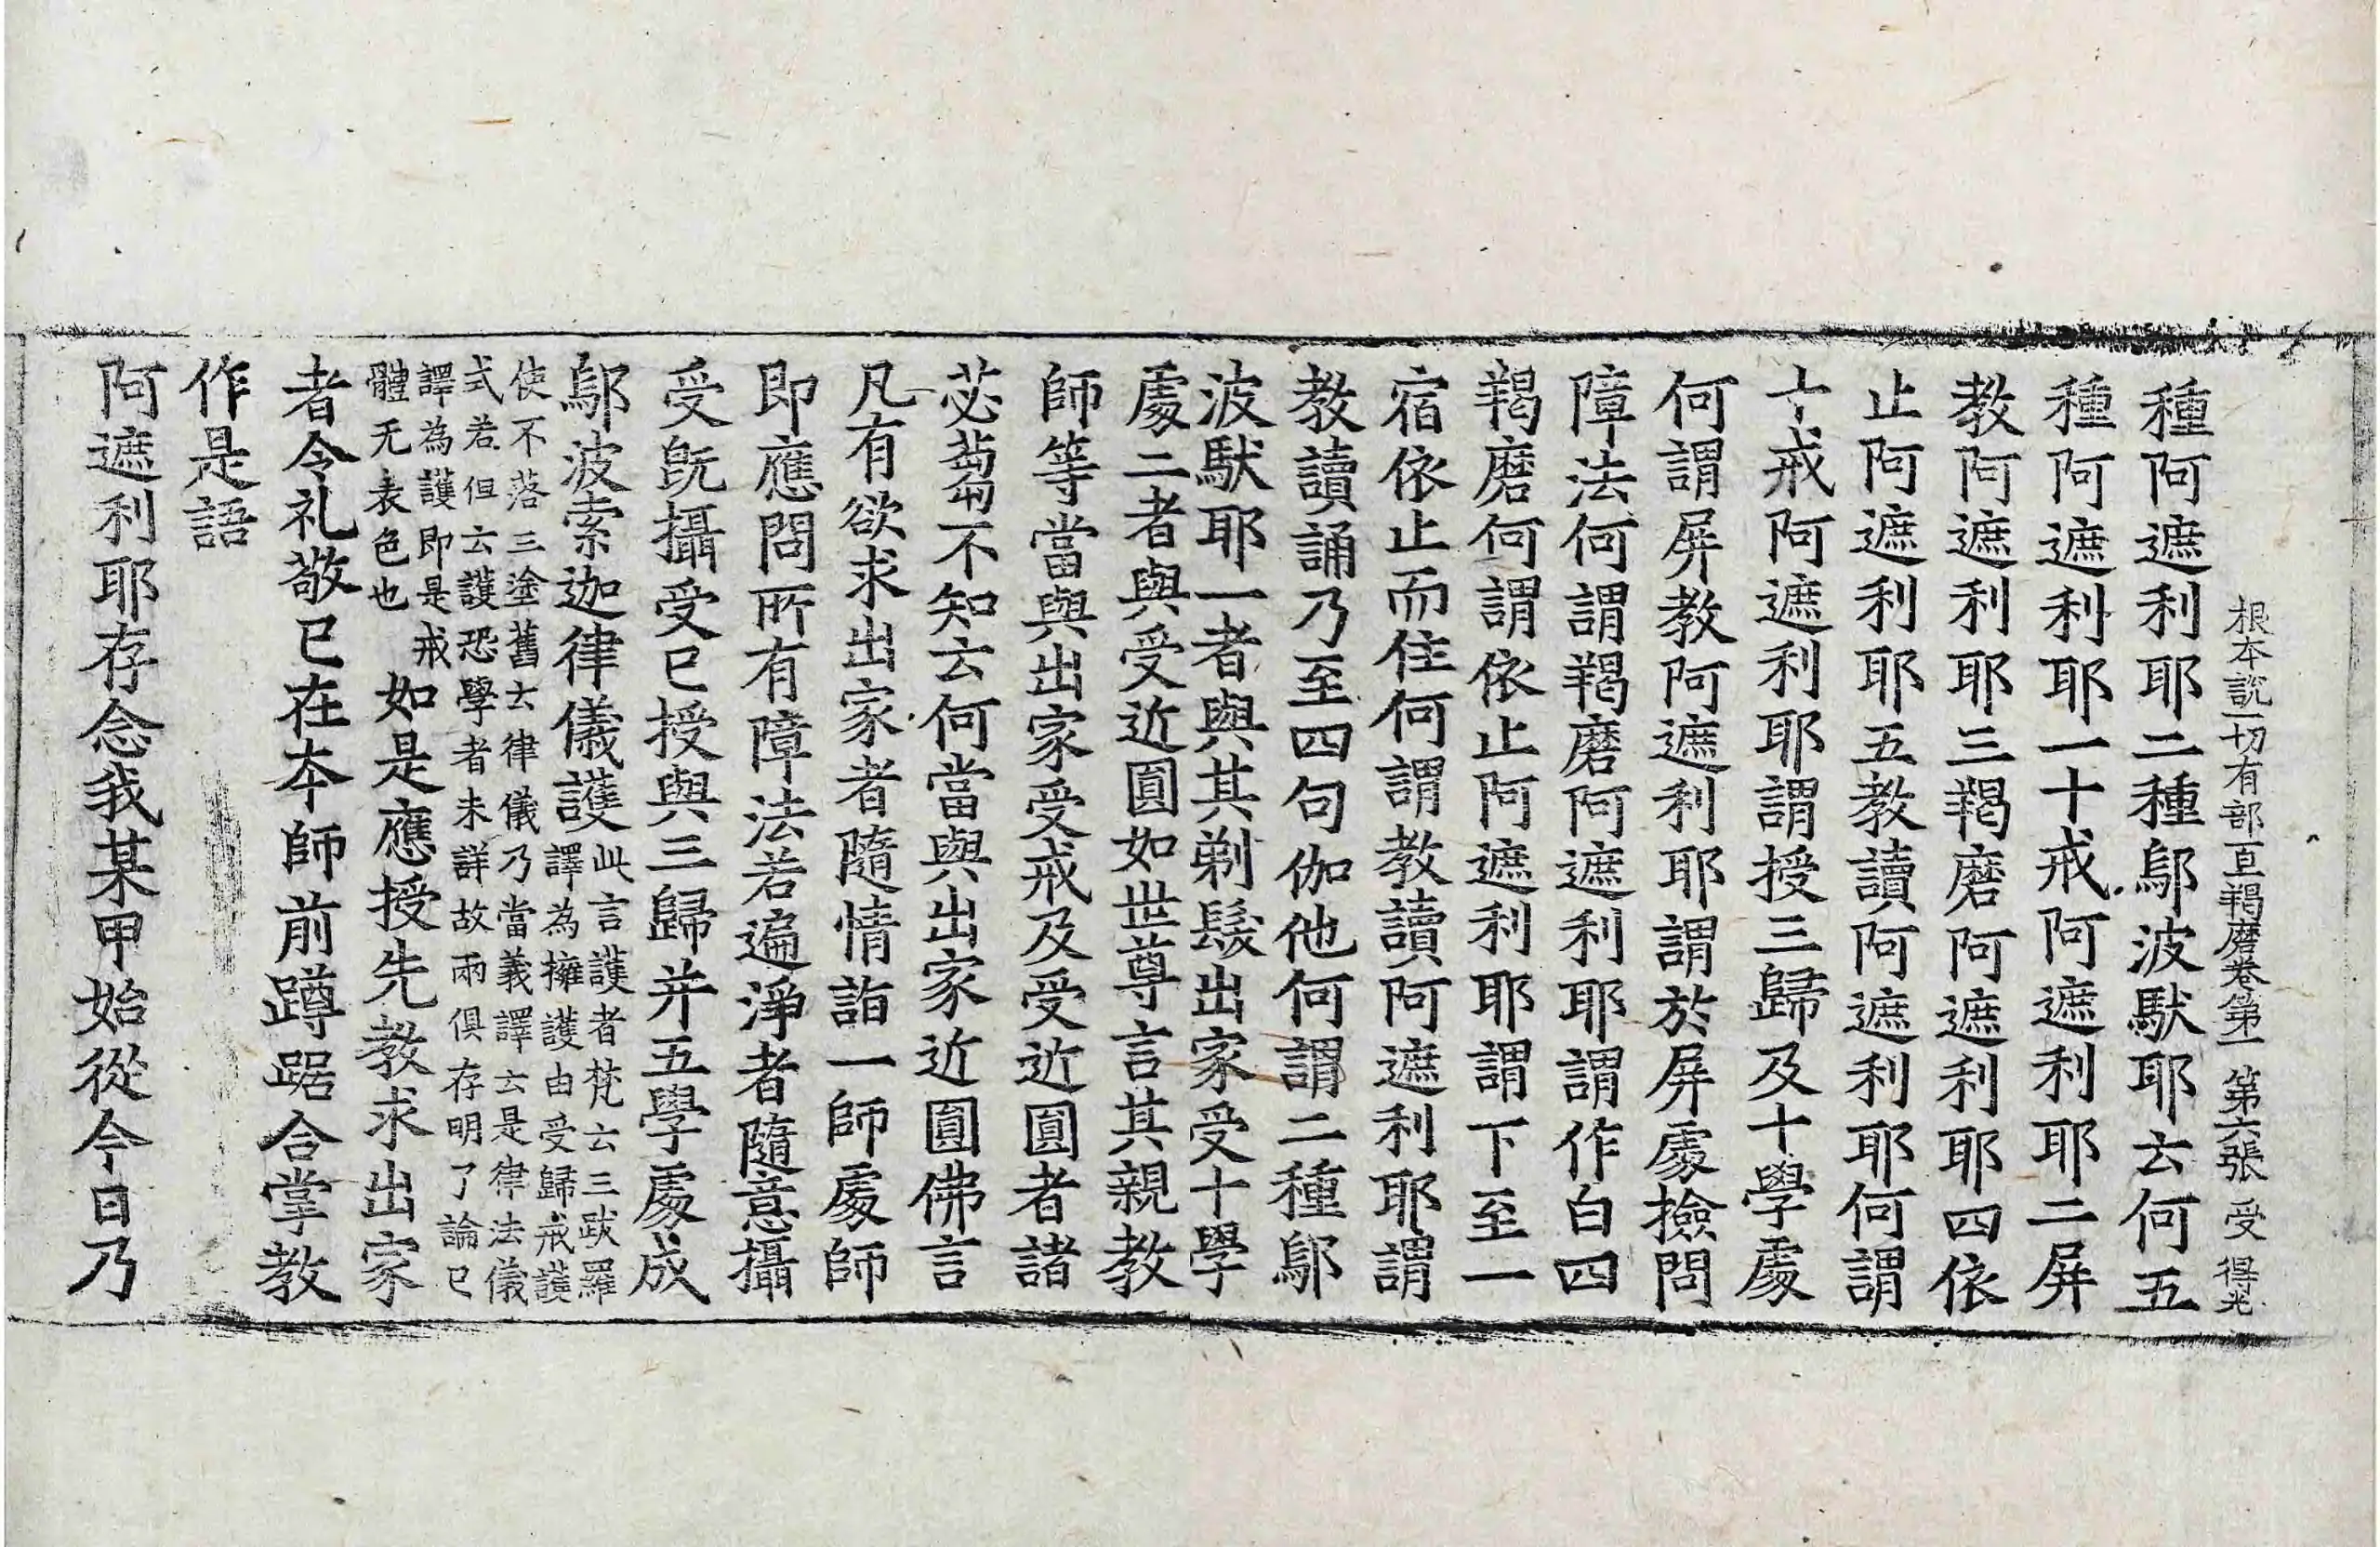 根本說一切有部百一羯磨卷第一 第六張 受 得光
種阿遮利耶二種鄔波馱耶云何五
種阿遮利耶一十戒阿遮利耶二屏
教阿遮利耶三羯磨阿遮利耶四依
止阿遮利耶五教讀阿遮利耶何謂
十戒阿遮利耶謂授三歸及十學處
何謂屏教阿遮利耶謂於屏處撿問
障法何謂羯磨阿遮利耶謂作白四
羯磨何謂依止阿遮利耶謂下至一
宿依止而住何謂教讀阿遮利耶謂
教讀誦乃至四句伽他何謂二種鄔
波馱耶一者與其剃髮出家受十學
處二者與受近圓如世尊言其親教
師等當與出家受戒及受近圓者諸
苾蒭不知云何當與出家近圓佛言
凡有欲求出家者隨情詣一師處師
即應問所有障法若遍淨者隨意攝
受旣攝受已授與三歸并五學處成
鄔波索迦律儀護此言護者梵云三跋羅
譯為擁護由受歸戒護
使不落三塗舊云律儀乃當義譯云是律法儀
式若但云護恐學者未詳故兩俱存明了論已
譯為護即是戒
體无表色也
如是應授先教求出家
者令礼敬已在本師前蹲踞合掌教
作是語
阿遮利耶存念我某甲始從今日乃